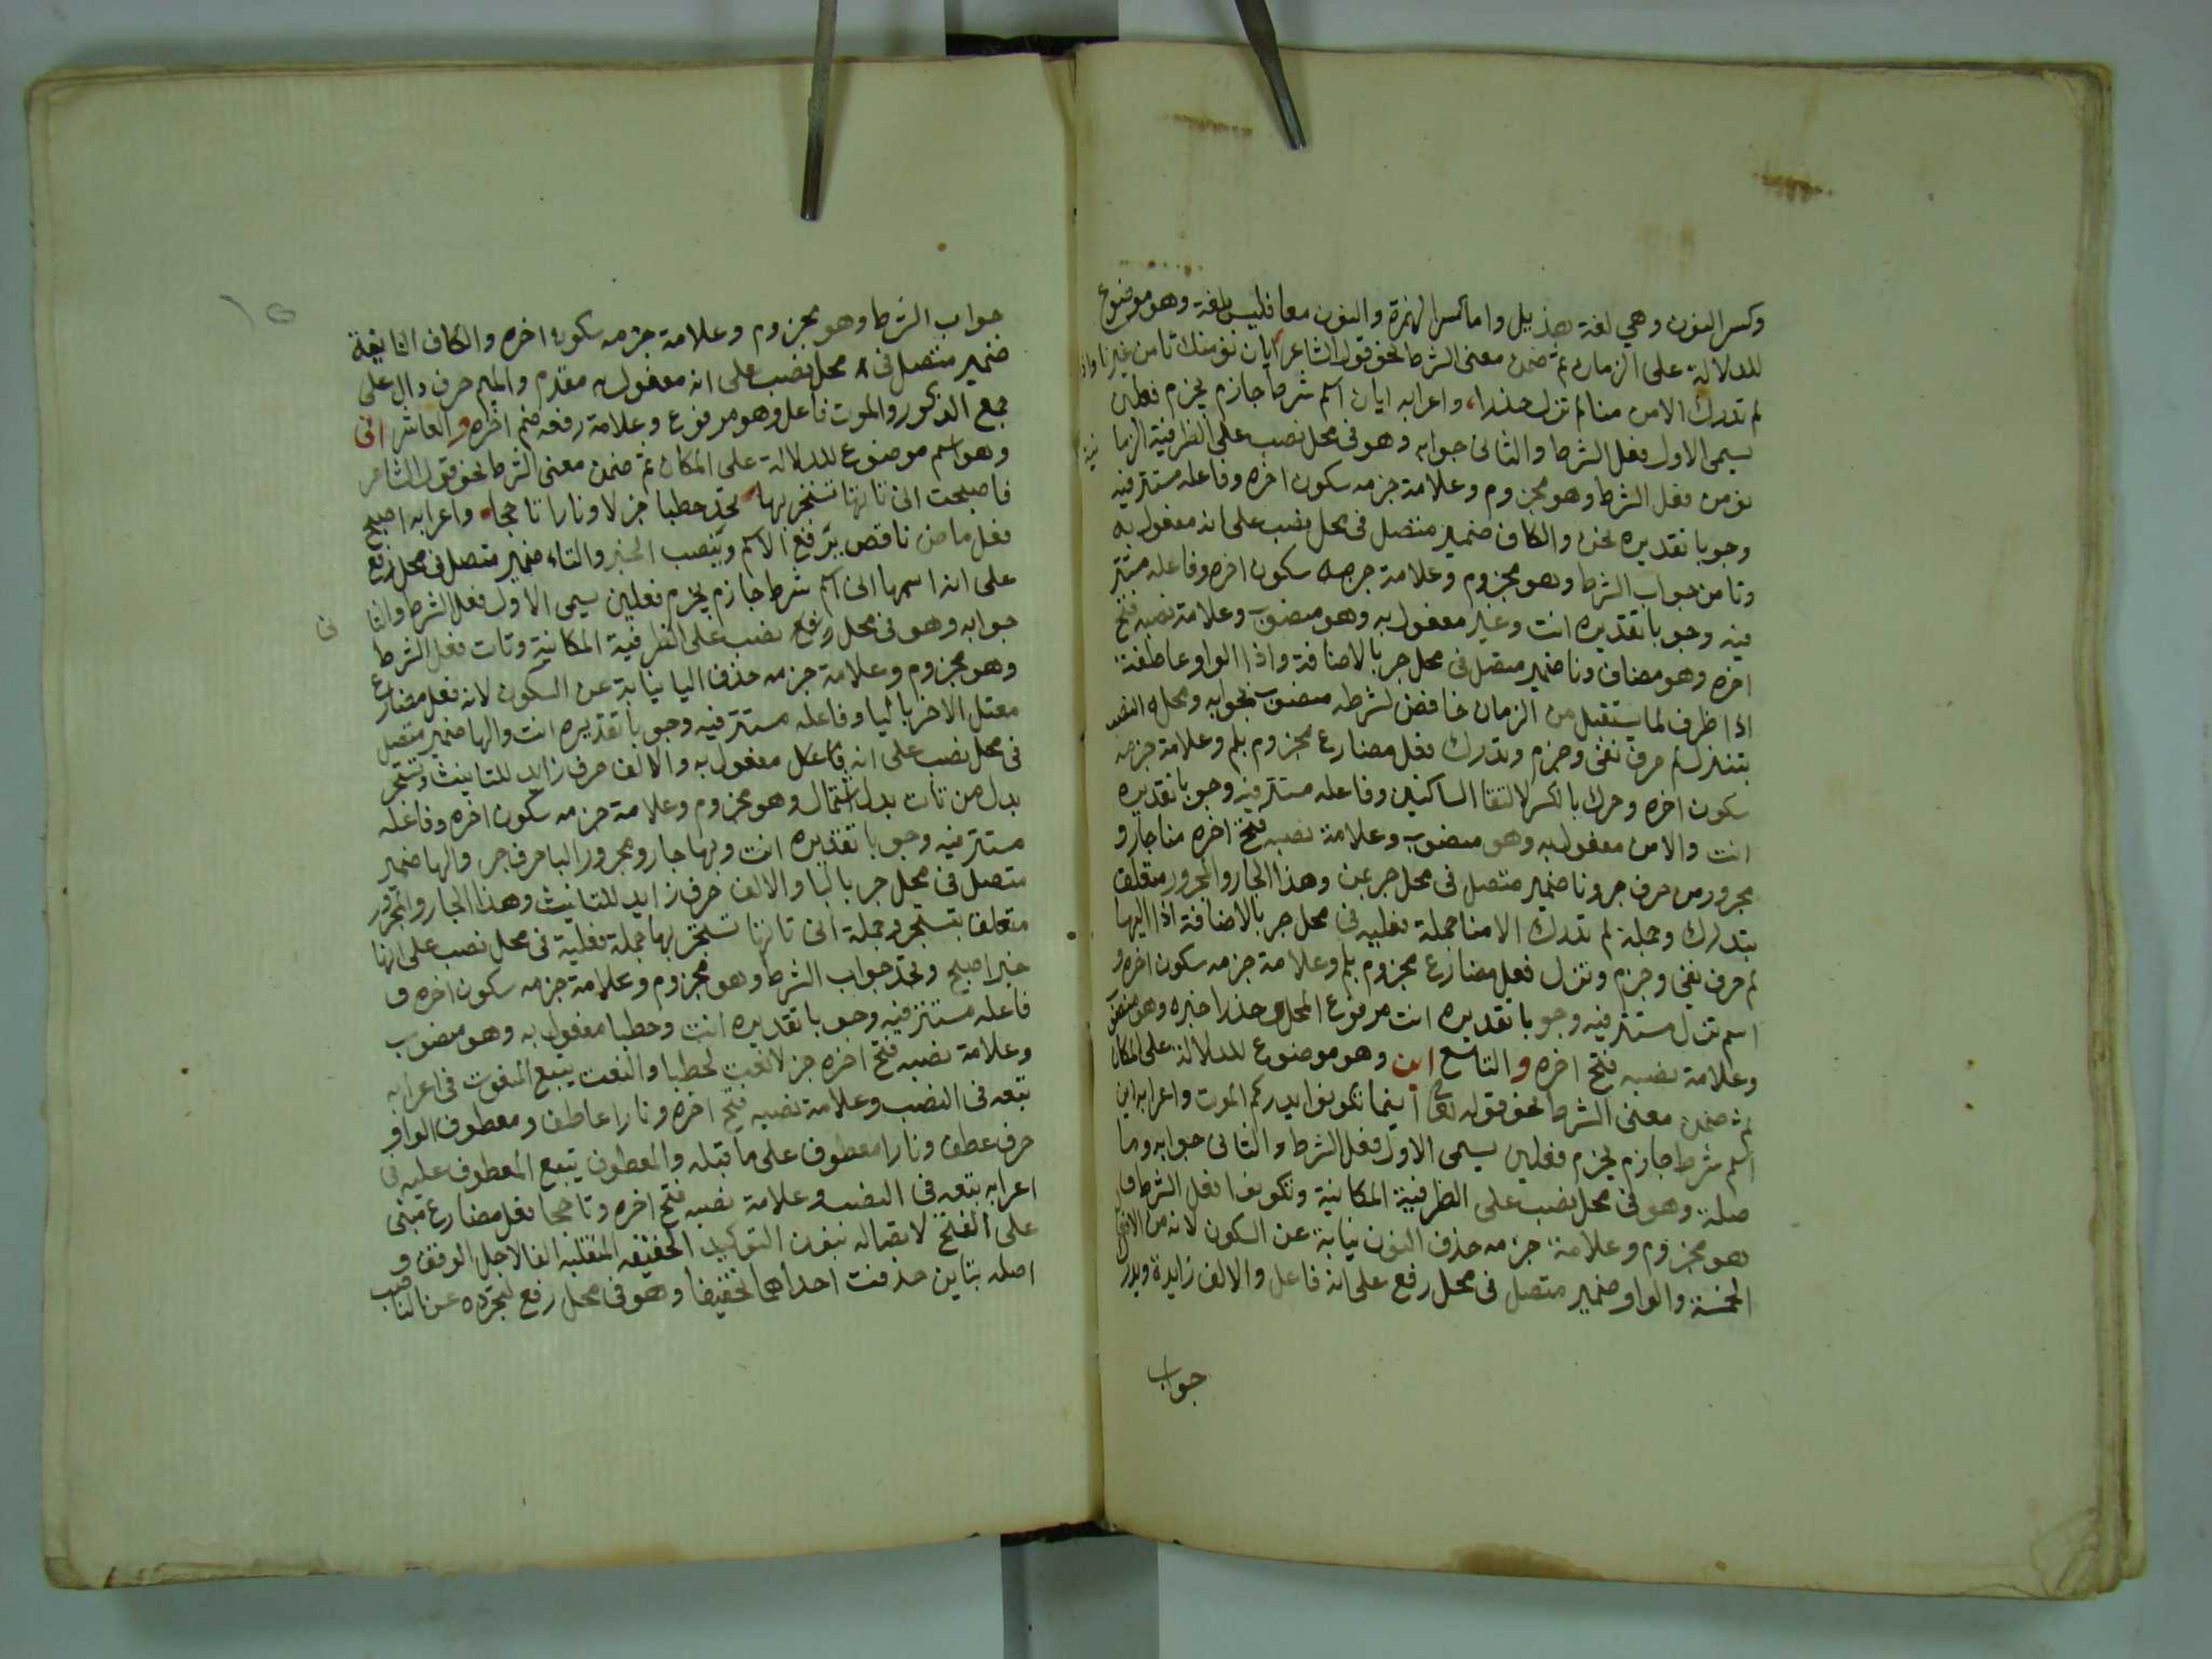 وكسر النون وهي لغة هذيل واما كسر الهمزة والنون معا فليس بلغة وهو موضوع
للدلالة على الزمان ثم ضمن معنى الشرط نحو قول الشاعر ايان نؤمنك تامن غيرنا واذا
لم تدرك الامن منا لم تزل حذرا، واعرابه ايان اسم شرط جازم يجزم فعلين
يسمى الاول فعل الشرط والثاني جوابه وهو في محل نصب على الظرفية الزما نية
نؤمن فعل الشرط وهو مجزوم وعلامة جزمه سكون اخره وفاعله مستتر فيه
وجوبا تقديره نحن والكاف ضمير متصل في محل نصب على انه مفعول به
وتامن جواب الشرط وهو مجزوم وعلامة جزمه سكون اخره وفاعله مستتر
فيه وجوبا تقديره انت وغير مفعول به وهو منصوب وعلامة نصبه فتح
اخره وهو مضاف ونا ضمير متصل في محل جر بالاضافة واذا الواو عاطفة
اذا ظرف لما يستقبل من الزمان خافض لشرطه منصوب بجوابه ومحله النصب
بتنزل لم حرف نفي وجزم وتدرك فعل مضارع مجزوم بلم وعلامة جزمه
سكون اخره وحرك بالكسر لالتقا الساكنين وفاعله مستتر فيه وجوبا تقديره
انت والامن مفعول به وهو منصوب وعلامة نصبه فتح اخره منا جار و
مجرور من حرف جر ونا ضمير متصل في محل جر بمن وهذا الجار والمجرور متعلق
بتدرك وجملة لم تدرك الامنا جملة فعليه في محل جر بالاضافة اذا اليها
لم حرف نفي وجزم وتزل فعل مضارع مجزوم بلم وعلامة جزمه سكون اخره و
اسم تزل مستتر فيه وجوبا تقديره انت مرفوع المحل حذرا خبره وهو منصوب
وعلامة نصبه فتح اخره والتاسع اين وهو موضوع للدلالة على المكان
ثم ضمن معنى الشرط نحو قوله تعالى اينما تكونوا يدرككم الموت واعرابه اين
اسم شرط جازم يجزم فعلين يسمى الاول فعل الشرط والثاني جوابه وما
صلة وهو في محل نصب على الظرفية المكانية وتكونوا فعل الشرط و
هو مجزوم وعلامة جزمه حذف النون نيابة عن السكون لانه من الافعال
الخمسة والواو ضمير متصل في محل رفع على انه فاعل والالف زايدة ويدرك
جواب
جواب الشرط وهو مجزوم وعلامة جزمه سكون اخره والكاف الثانية
ضمير متصل في محل نصب على انه مفعول به مقدم والميم حرف دال على
جمع الذكور والموت فاعل وهو مرفوع وعلامة رفعه ضم اخره والعاشر انى
وهو اسم موضوع للدلالة على المكان ثم ضمن معنى الشرط نحو قول الشاعر
فاصبحت انى تاتها تستجر بها تجد حطبا جزلا ونارا تاججا، واعرابه اصبح
فعل ماض ناقص يرفع الاسم وينصب الخبر والتاء ضمير متصل في محل رفع
على انه اسمها انى اسم شرط جازم يجزم فعلين يسمى الاول فعل الشرط والثا نى
جوابه وهو في محل رفع نصب على الظرفية المكانية وتات فعل الشرط
وهو مجزوم وعلامة جزمه حذف اليا نيابة عن السكون لانه فعل مضارع
معتل الاخر باليا وفاعله مستتر فيه وجوبا تقديره انت والها ضمير متصل
في محل نصب على انه فاعل مفعول به والالف حرف زايد للتانيث وتستجر
بدل من تات بدل اشتمال وهو مجزوم وعلامة جزمه سكون اخره وفاعله
مستتر فيه وجوبا تقديره انت وبها جار ومجرور البا حرف جر والها ضمير
متصل في محل جر بالبا والالف حرف زايد للتانيث وهذا الجار والمجرور
متعلقا بتستجر وجملة انى تاتها تستجر بها جملة فعلية في محل نصب على انها
خبر اصبح وتجد جواب الشرط وهو مجزوم وعلامة جزمه سكون اخره و
فاعله مستتر فيه وجوبا تقديره انت وحطبا مفعول به وهو منصوب
وعلامة نصبه فتح اخره جزلا نعت لحطبا والنعت يتبع المنعوت في اعرابه
تبعه في النصب وعلامة نصبه فتح اخره ونارا عاطف ومعطوف الواو
حرف عطف ونارا معطوف على ما قبله والمعطوف يتبع المعطوف عليه في
اعرابه تبعه في النصب وعلامة نصبه فتح اخره وتاججا فعل مضارع مبنى
على الفتح لاتصاله بنون التوكيد الخفيفه المنقلبه الفا لاجل الوقف و
اصله بتاين حذفت احداهما تخفيفا وهو في محل رفع لتجرده عن الناصب